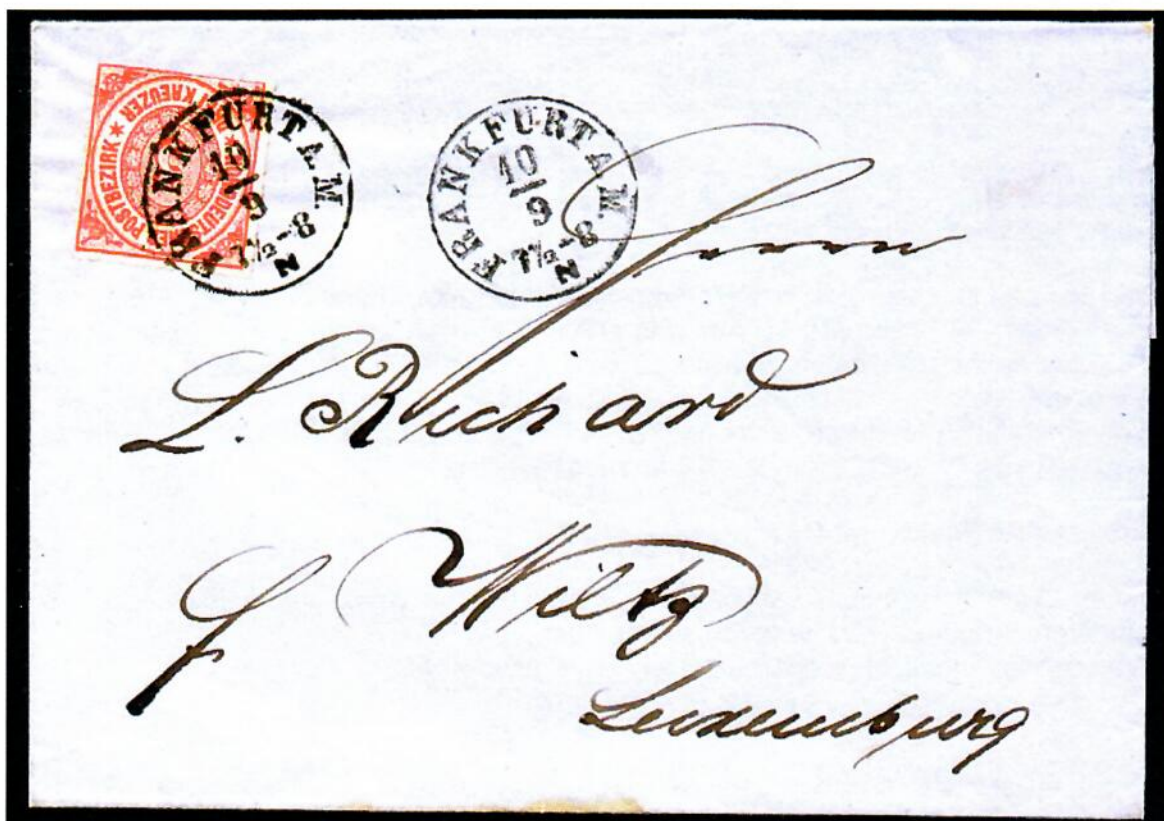 NORDDEUTSCHER POSTBEZIRK * KREUZER
FRANKFURT A.M.
10/9
7½-8 N
FRANKFURT A.M.
10/9
7½-8 N
Herrn
L. Richard
f Wiltz
Luxemburg